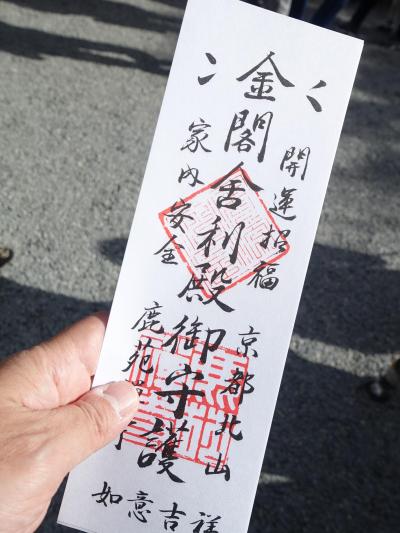 金閣舎利殿御守護
開運招福
家内安全
京都北山
鹿苑
如意吉祥